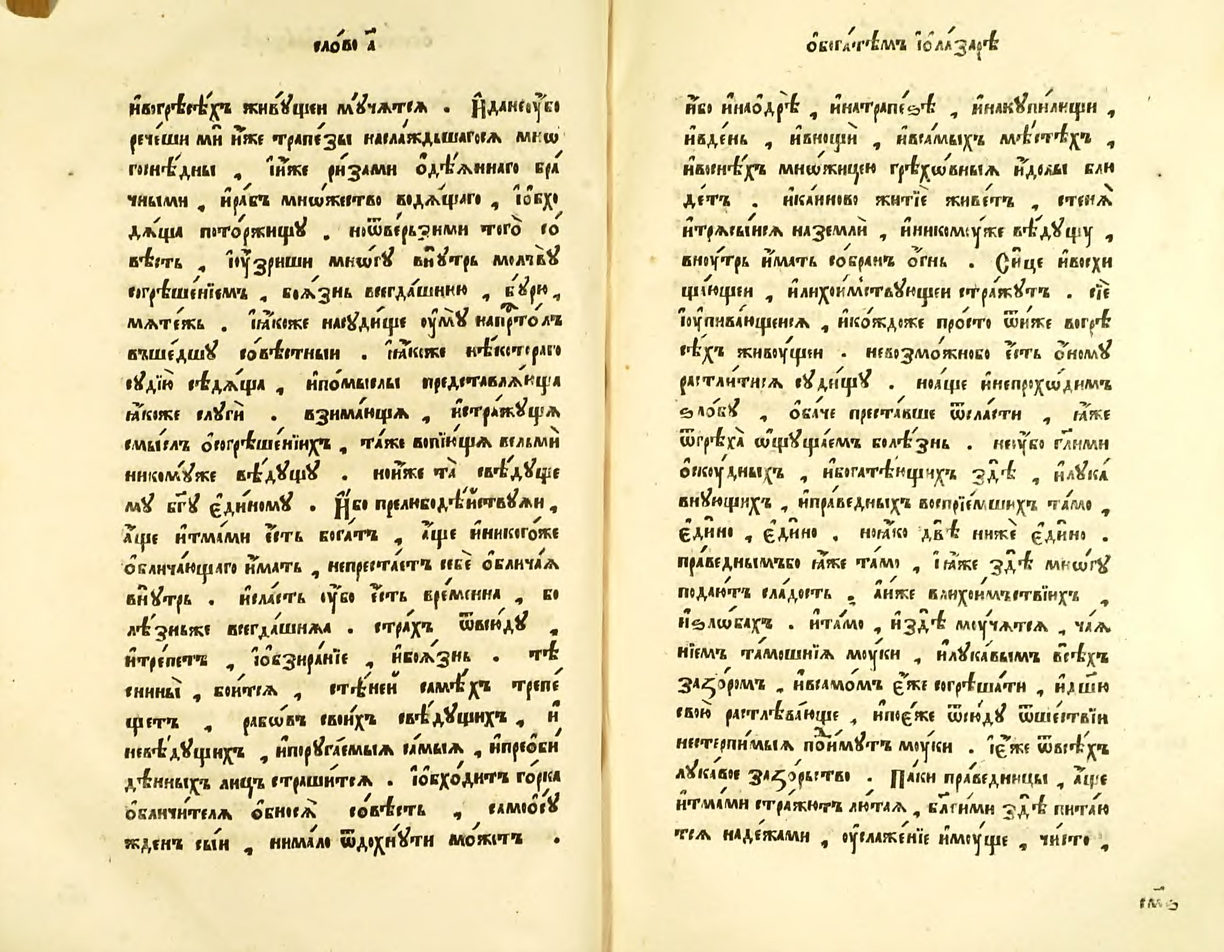 сло́во а҃
и҆вогрѣсѣ́хъ живꙋ́щеи мꙋ́чѧтсѧ . И҆данеоу҆́бо
рече́ши мѝ и҆́же трапе́зы наслаждьшагосѧ мнѡ
госнѣ́дны , і҆и҆́же ри́зами ѻ҆дѣѧннаго бра́
чными , и҆ра́бъ мно́жество водѧ́щаго , і҆ѡбхо
дѧ́ща пото́ржищꙋ . ноѿве́рьзими того̀ со́
вѣсть , і҆оу҆́зриши мно́гꙋ внꙋ́трь молчвꙋ̀
согрѣше́нїемъ , боѧ́знь всегда́шнюю , бꙋ́рю ,
мѧте́жь . ꙗ҆́коже насꙋди́ще оу҆мꙋ̀ напрⷭ҇то́лъ
въше́дшꙋ со́вѣстныи . ꙗ҆́коже нѣ́котораго
сꙋдїю̀ сѣдѧ́ща , и҆по́мыслы представлѧ́юща
ꙗ҆́коже слꙋгѝ . взима́ющѧ , и҆стра́жꙋщѧ
смы́слъ ѡ҆согрѣше́нїихъ , та́же вопїю́щѧ вельмѝ
никомꙋ́же вѣ́дꙋщꙋ . нои҆́же та̀ свѣ́дꙋще
мꙋ бг҃ꙋ є҆ди́номꙋ . И҆́бо прелюбодѣ́йствꙋѧи ,
а҆́ще и҆тма́ми є҆́сть бога́тъ , а҆́ще и҆никого́же
ѻ҆блича́ющаго и҆́мать , непреста́етъ себѐ ѻ҆блича́ѧ
внꙋ́трь . и҆сла́сть оу҆́бо є҆́сть вре́менна , бо
лѣ́зньже всегда́шнѧѧ . стра́хъ ѿвсю́дꙋ ,
и҆тре́петъ , і҆ѡбзира́нїе , и҆боѧ́знь . тѣ
снины̀ , бои́тсѧ , стѣне́й самѣ́хъ трепе́
щетъ , рабѡ́въ свои́хъ свѣ́дꙋщихъ , и҆
невѣ́дꙋщихъ , и҆порꙋга́емыѧ са́мыѧ , и҆прео́би
дѣнныхъ ли́цъ страши́тсѧ . і҆ѡбхо́дитъ го́рка
ѻ҆бличи́телѧ ѻ҆бносѧ̀ со́вѣсть , самоѻ҆сꙋ
жде́нъ сы́и , нима́ло ѿдохнꙋ́ти мо́жетъ .
ѻ҆бога́тѣмъ і҆ола́зарѣ
и҆́бо и҆наѻ҆дрѣ̀ , и҆натрапе́ѕѣ , и҆накꙋпи́лищи ,
и҆вде́нь , и҆внощѝ , и҆вса́мыхъ мѣ́стѣхъ ,
и҆воснѣ́хъ мно́жицею грѣхо́вныѧ и҆́долы бли
де́тъ . и҆ка́иново житїѐ живе́тъ , стенѧ̀
и҆трѧсы́исѧ наземлѝ , и҆никомꙋ́же вѣ́дꙋщꙋ ,
вноу́трь и҆́мать со́бранъ ѻ҆́гнь . Си́це и҆восхи
ща́ющеи , и҆лихои́мствꙋющеи стра́жꙋтъ . сїѐ
і҆оу҆пива́ющеисѧ , и҆ко́ждоже про́сто ѿи҆́же вогрѣ
сѣ́хъ живоу́щеи . невозмо́жнобо є҆́сть ѻ҆́номꙋ
растли́тисѧ сꙋди́щꙋ . ноа҆́ще и҆непрохо́димъ
ѕло́бꙋ , ѻ҆ба́че преста́вше ѿсла́сти , ꙗ҆́же
ѿгрѣха̀ ѡ҆щꙋща́емъ болѣ́знь . неоу҆́бо гл҃ими
ѻ҆скоу́дныхъ , и҆богатѣ́ющихъ здѣ̀ , и҆лꙋка́
внꙋющихъ , и҆пра́ведныхъ воспрїе́мшихъ та́мо ,
є҆ди́но , є҆ди́но . ноꙗ҆́ко двѣ̀ нижѐ є҆ди́но .
пра́веднымъбо ꙗ҆́же та́мо , і҆ꙗ҆́же здѣ̀ мно́гꙋ
подаю́тъ сла́дость . а҆и҆́же влихои́мъствїихъ ,
и҆ѕло́бахъ . и҆та́мо , и҆здѣ̀ моуча́тсѧ , ча́ѧ
нїемъ та́мошнїѧ моу́ки , и҆лꙋка́вымъ всѣ́хъ
зазо́ромъ , и҆всамо́мъ є҆́же согрѣша́ти , и҆дш҃ю
свою̀ растлѣва́юще , и҆поє҆́же ѿсю́дꙋ ѿше́ствїи
нестерпи́мыѧ по́имꙋтъ моу́ки . і҆є҆́же ѿвсѣ́хъ
лꙋка́вое зазо́рьство . Па́ки пра́ведницы , а҆́ще
и҆тма́ми стра́жютъ лю́таѧ , благи́ми здѣ̀ пита́ю
тсѧ наде́жами , оу҆слажде́нїе и҆мꙋ́ще , чи́сто ,